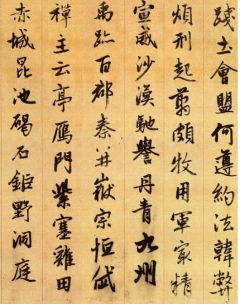 踐土會盟何遵約法韓弊
煩刑起翦頗牧用軍最精
宣威沙漠馳譽丹青九州
禹跡百郡秦并嶽宗恒岱
禪主云亭鴈門紫塞雞田
赤城昆池碣石鉅野洞庭